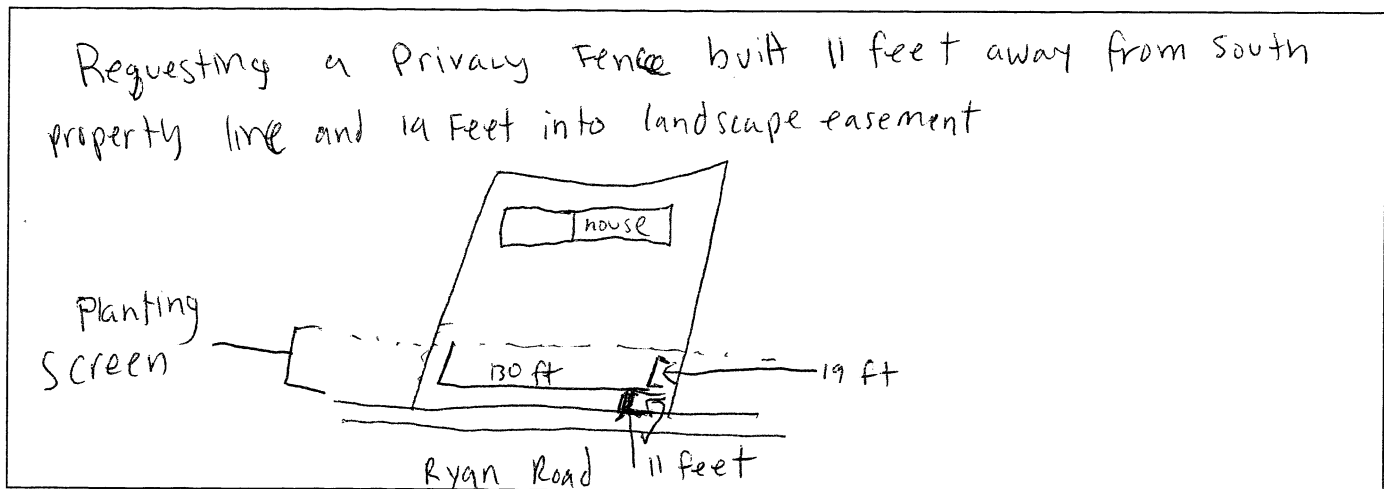 Requesting a Privacy Fence built 11 feet away from south
property line and 19 Feet into landscape easement
house
Planting
Screen
130 ft
19 ft
Ryan Road
11 feet